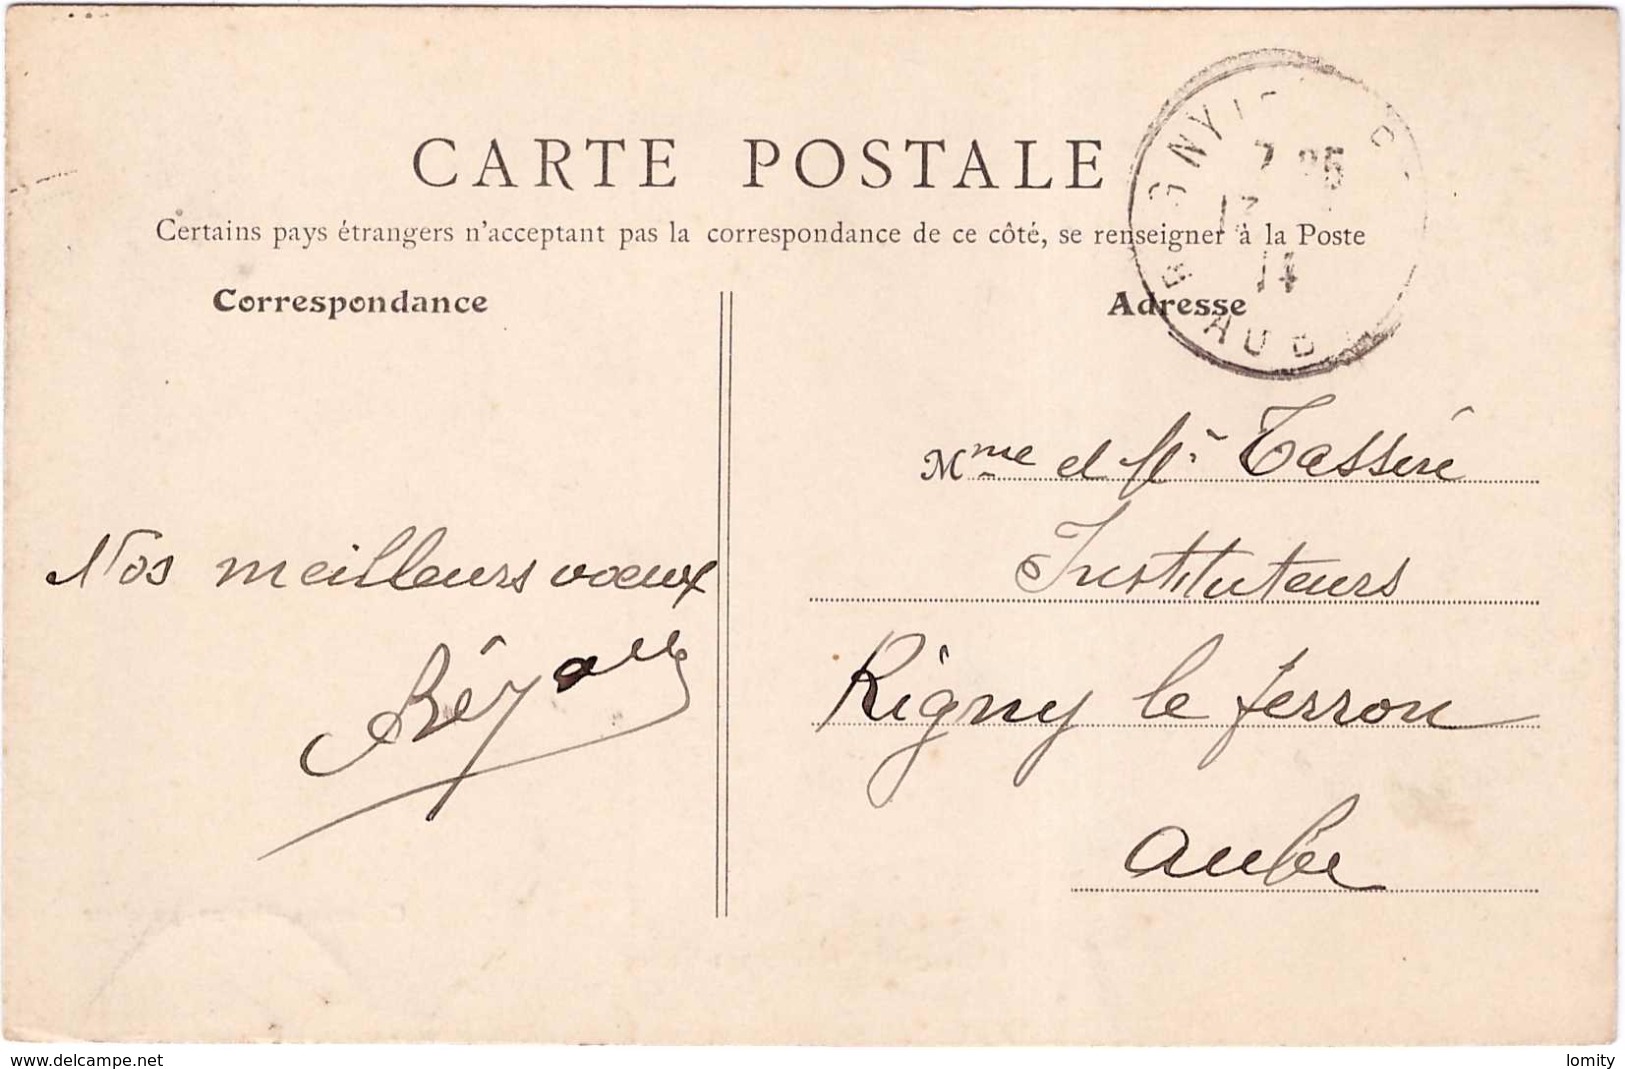 CARTE POSTALE
Certains pays étrangers n'acceptant pas la correspondance de ce côté, se renseigner à la Poste
Correspondance
Adresse
7 25
13
14
AUB
Mme et Mr Tasseré
Instituteurs
Rigny le ferron
Aube
Nos meilleurs voeux
www.delcampe.net
lomity